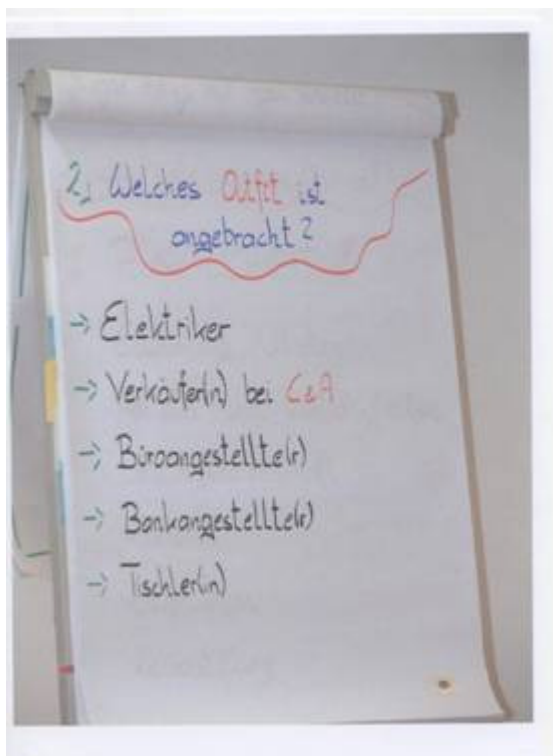 2, Welches Outfit ist
angebracht?
-> Elektriker
-> Verkäufer(in) bei C&A
-> Büroangestellte(r)
-> Bankangestellte(r)
-> Tischler(in)